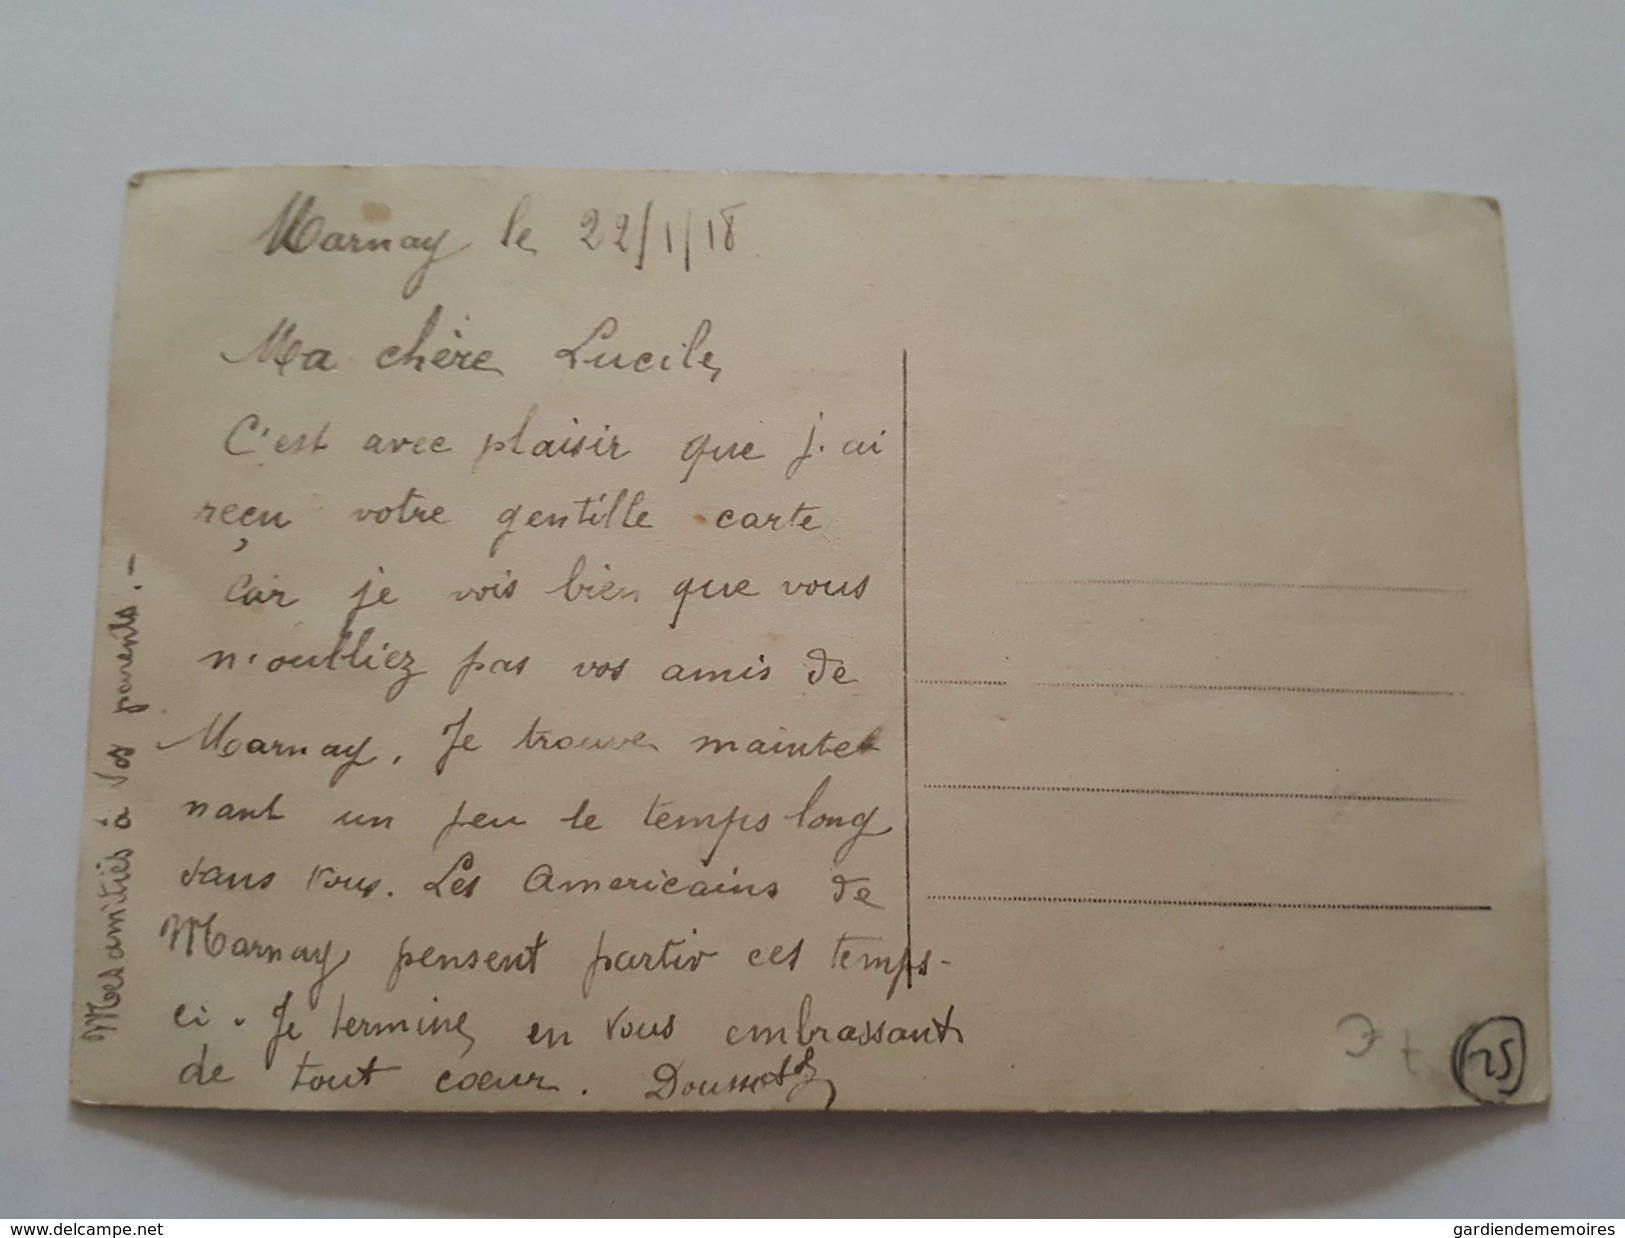 Marnay le 22/1/18
Ma chère Lucile,
C'est avec plaisir que j'ai
reçu votre gentille carte
Car je vois bien que vous
n'oubliez pas vos amis de
Marnay. Je trouve mainte
nant un peu le temps long
sans vous. Les Américains de
Marnay pensent partir ces temps-
ci. Je termine en vous embrassant
de tout coeur.
Mes amitiés à vos parents.-
25
www.delcampe.net
gardiendememoires